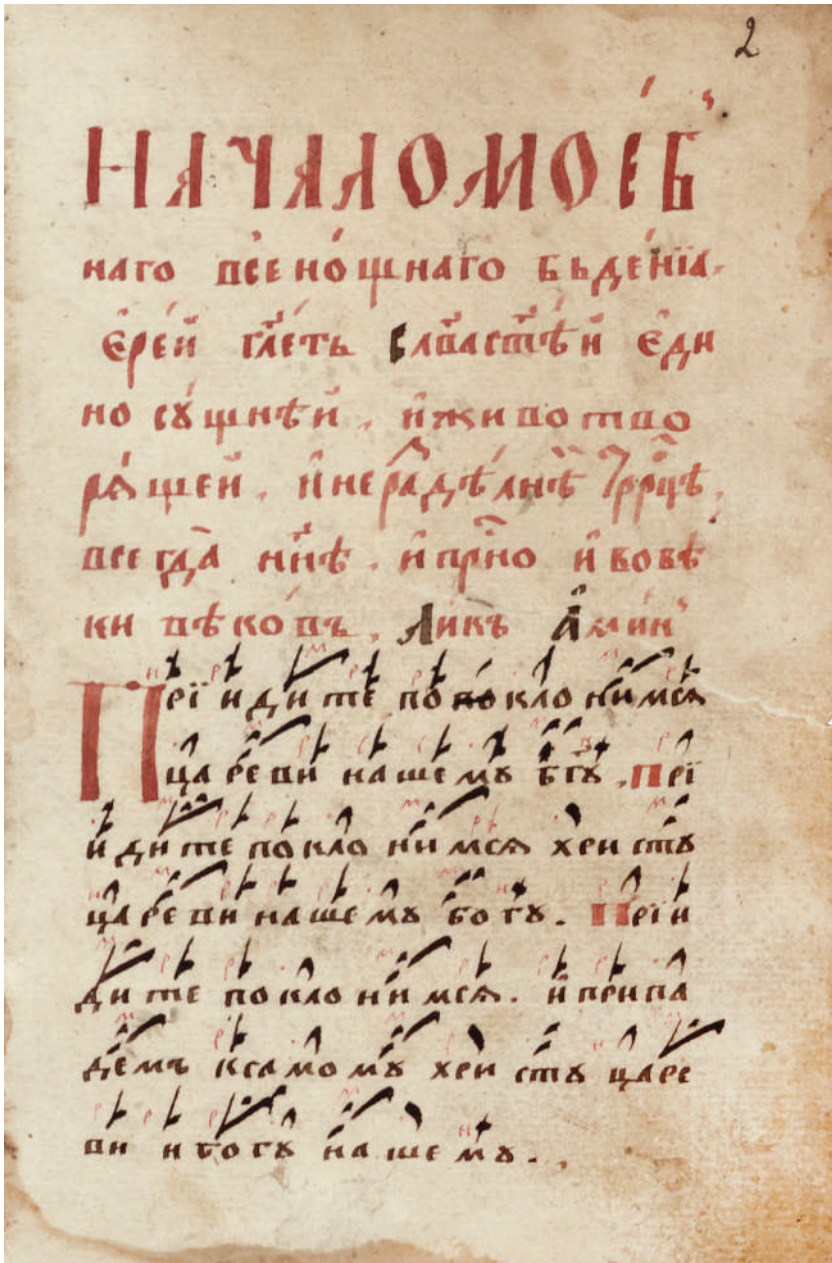 2
НАЧАЛО МОЕ́Б
наго всено́щнаго бьде́нїа.
Єре́й гл҃етъ Сла́ва ст҃ѣй єди
носу́щнѣй, и҆животво
ря́щей, и҆нераздѣ́лнѣй Трⷪ҇цѣ,
всегда̀ нн҃ѣ, и҆при́сно и҆вовѣ
ки вѣко́въ, Ликъ А҆ми́нь
Прїидите по кло нимся
царе ви нашему бг҃у. Прї
и дите покло нимся хри сту
царе ви нашему богу. Прїи
дите покло нимся. и припа
демъ ксамому хри сту царе
ви и богу нашему.